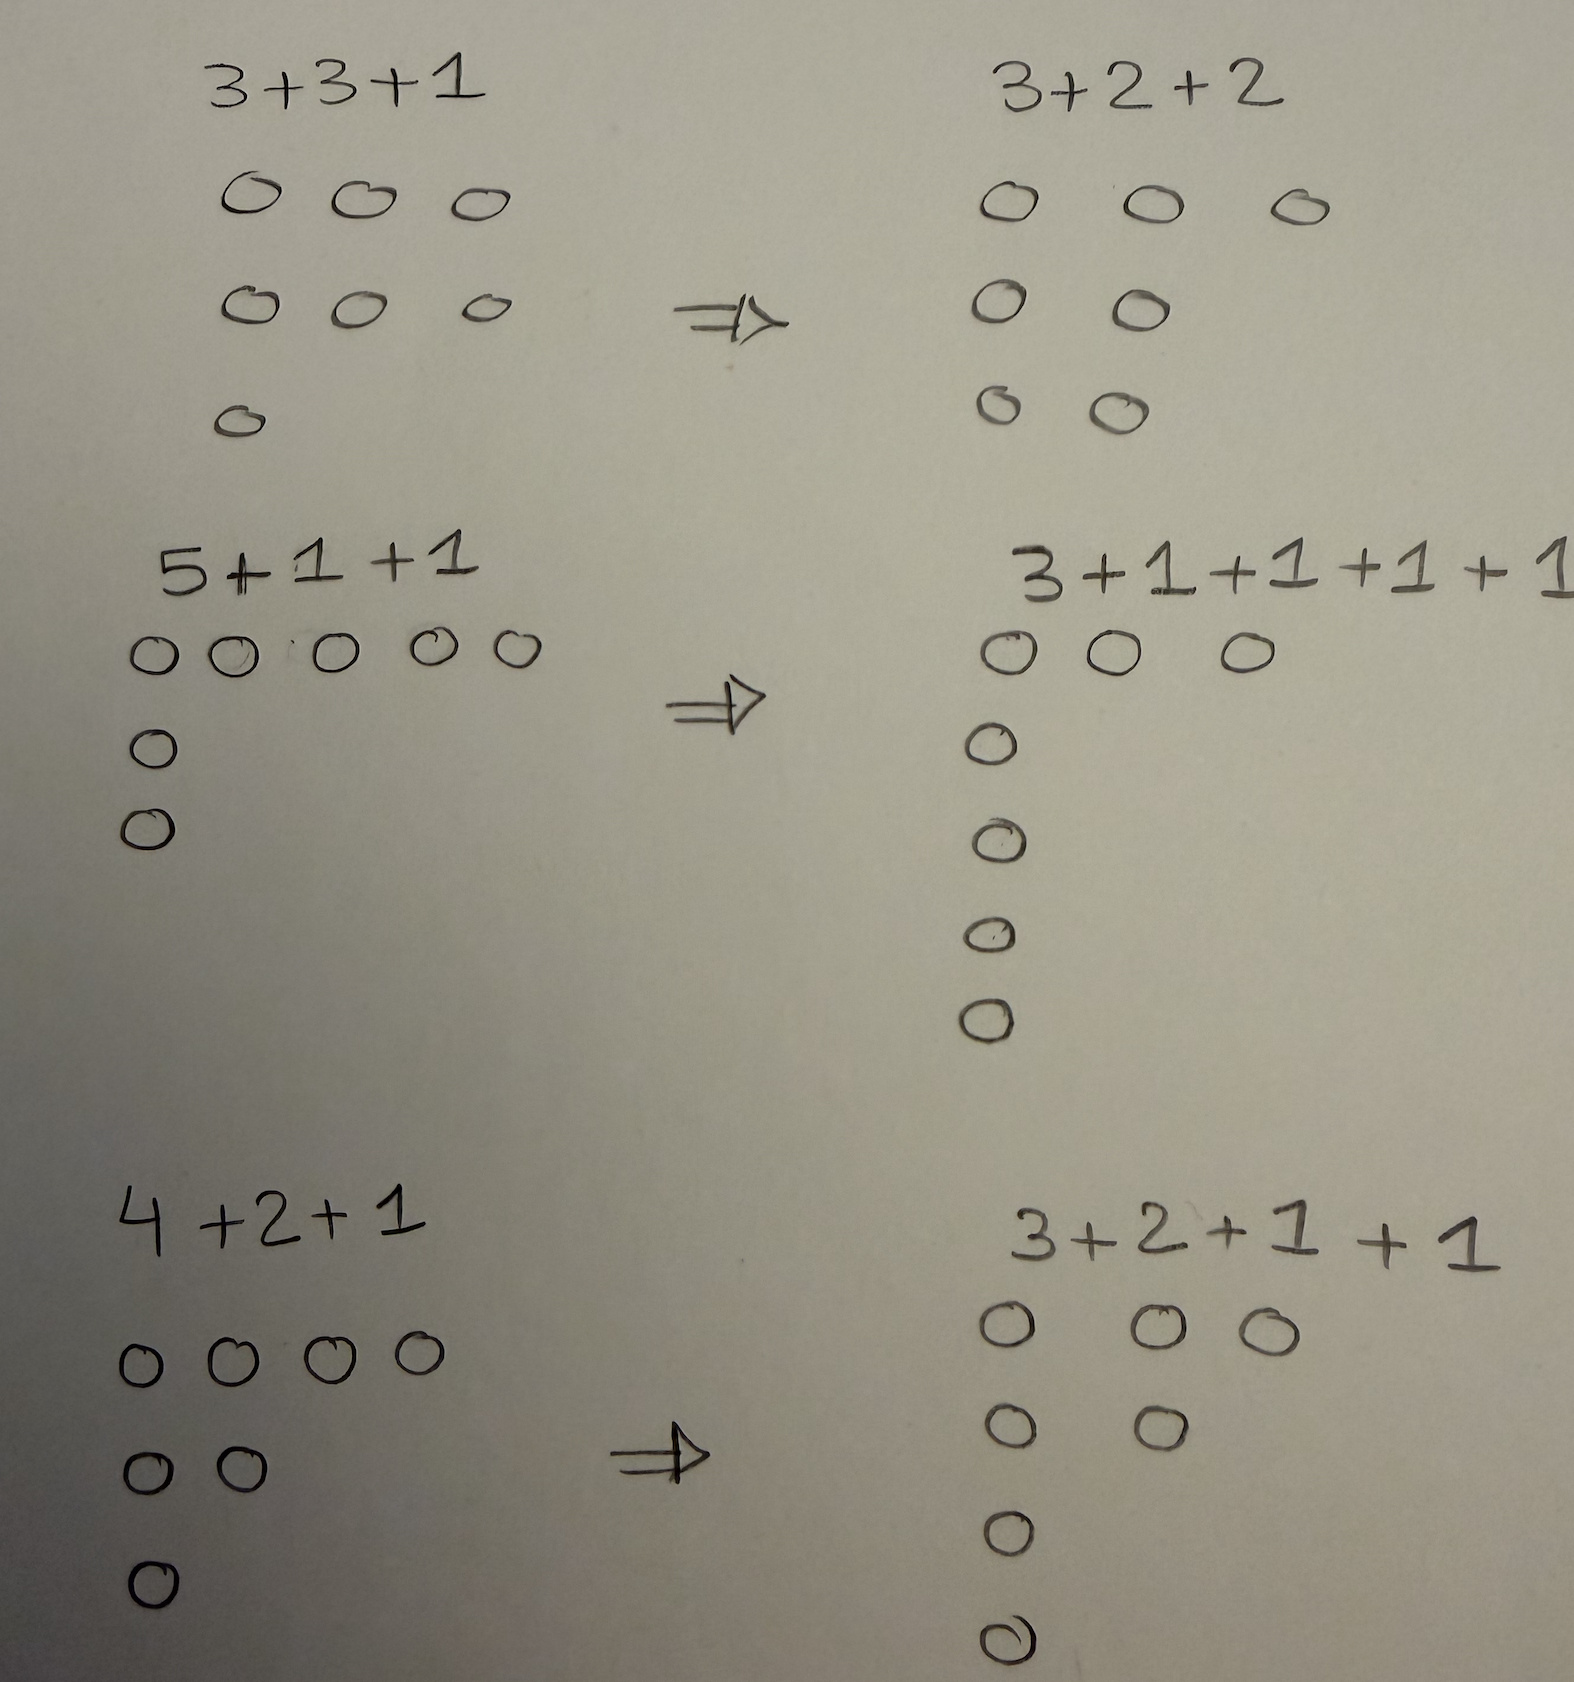 3+3+1
3+2+2
⇒
5+1+1
3+1+1+1+1
⇒
4+2+1
3+2+1+1
⇒